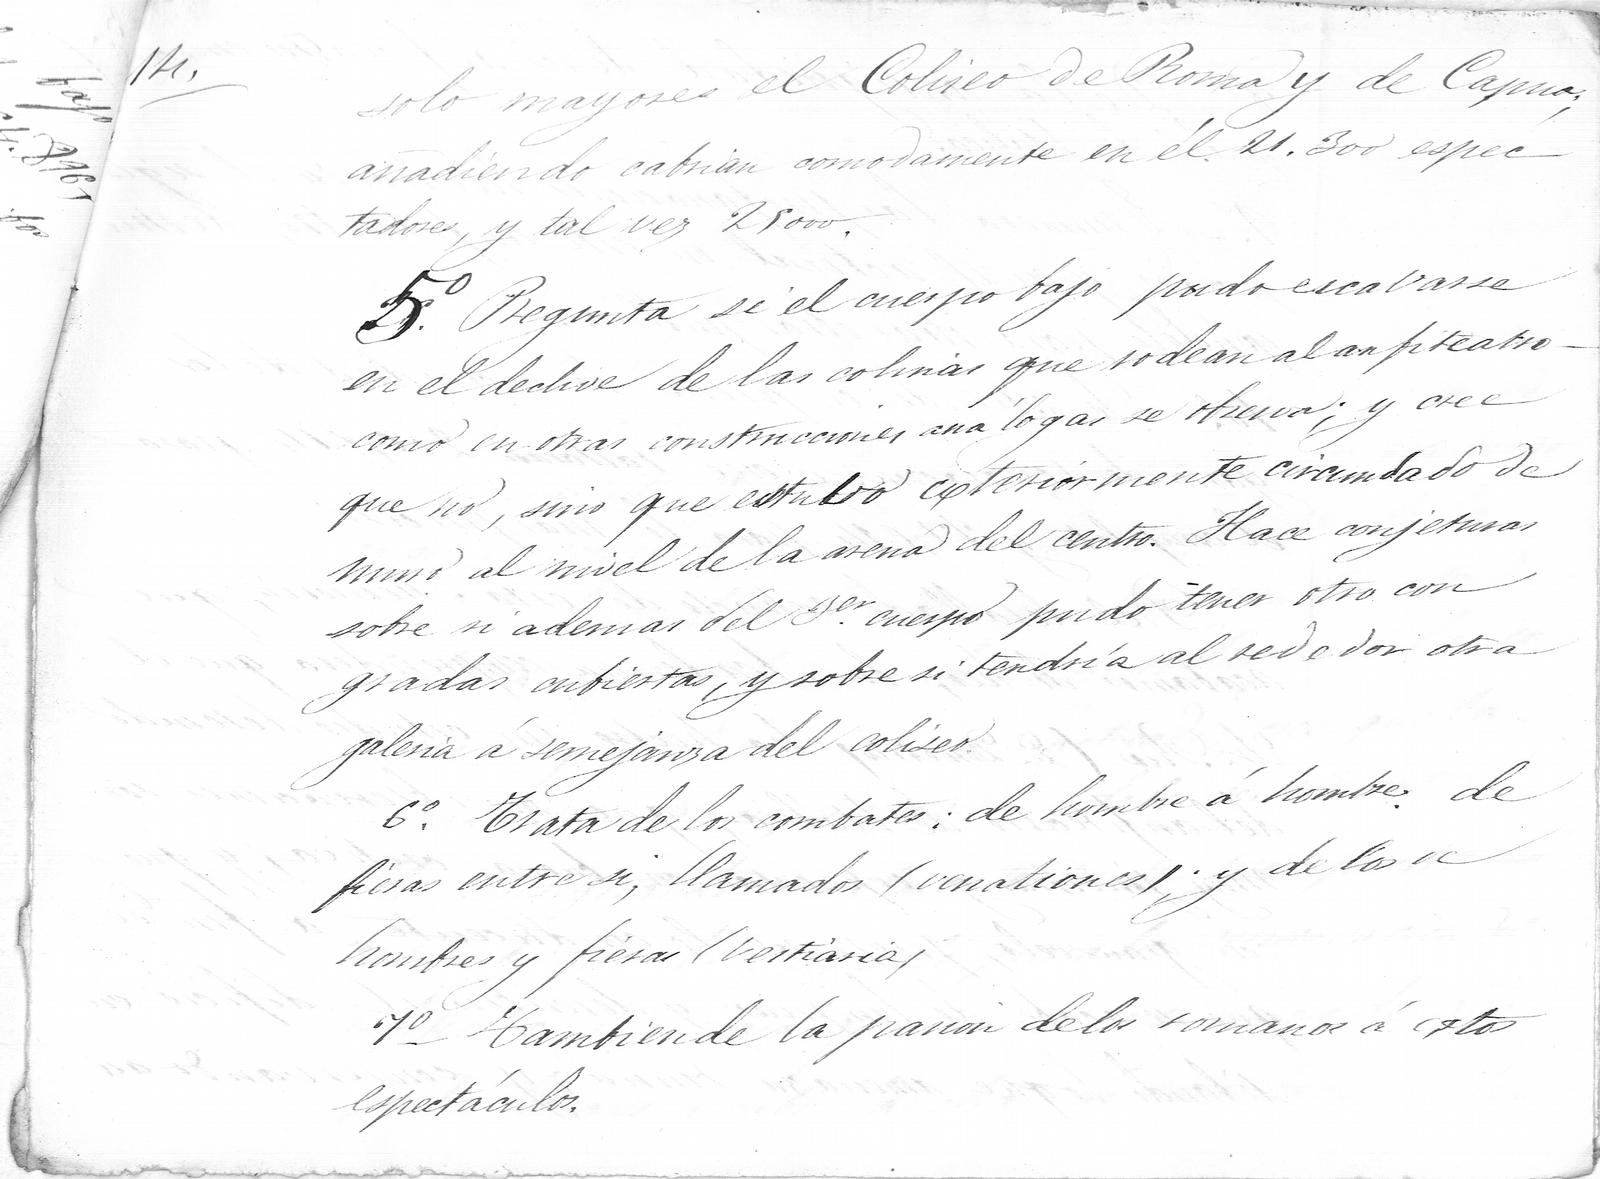 14.
solo mayores el Coliseo de Roma y de Capua;
añadiendo cabrian comodamente en él 21.300 espec
tadores, y tal vez 25000.
5º. Pregunta si el cuerpo bajo pudo escavarse
en el declive de las colinas que rodean al anfiteatro
como en otras construcciones análogas se observa; y cree
que no, sino que estuvo exteriormente circundado de
muro al nivel de la arena del centro. Hace conjeturas
sobre si ademas del 3er. cuerpo pudo tener otro con
gradas cubiertas, y sobre si tendría al rededor otra
galeria á semejanza del coliseo.
6º. Trata de los combates: de hombre á hombre; de
fieras entre si, llamados (venationes); y de los de
hombres y fieras (vestiaria)
7º Tambien de la pasion de los romanos á estos
espectáculos.
bajo